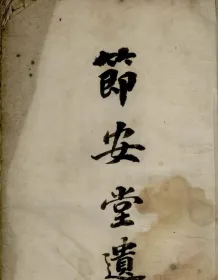 節安堂遺